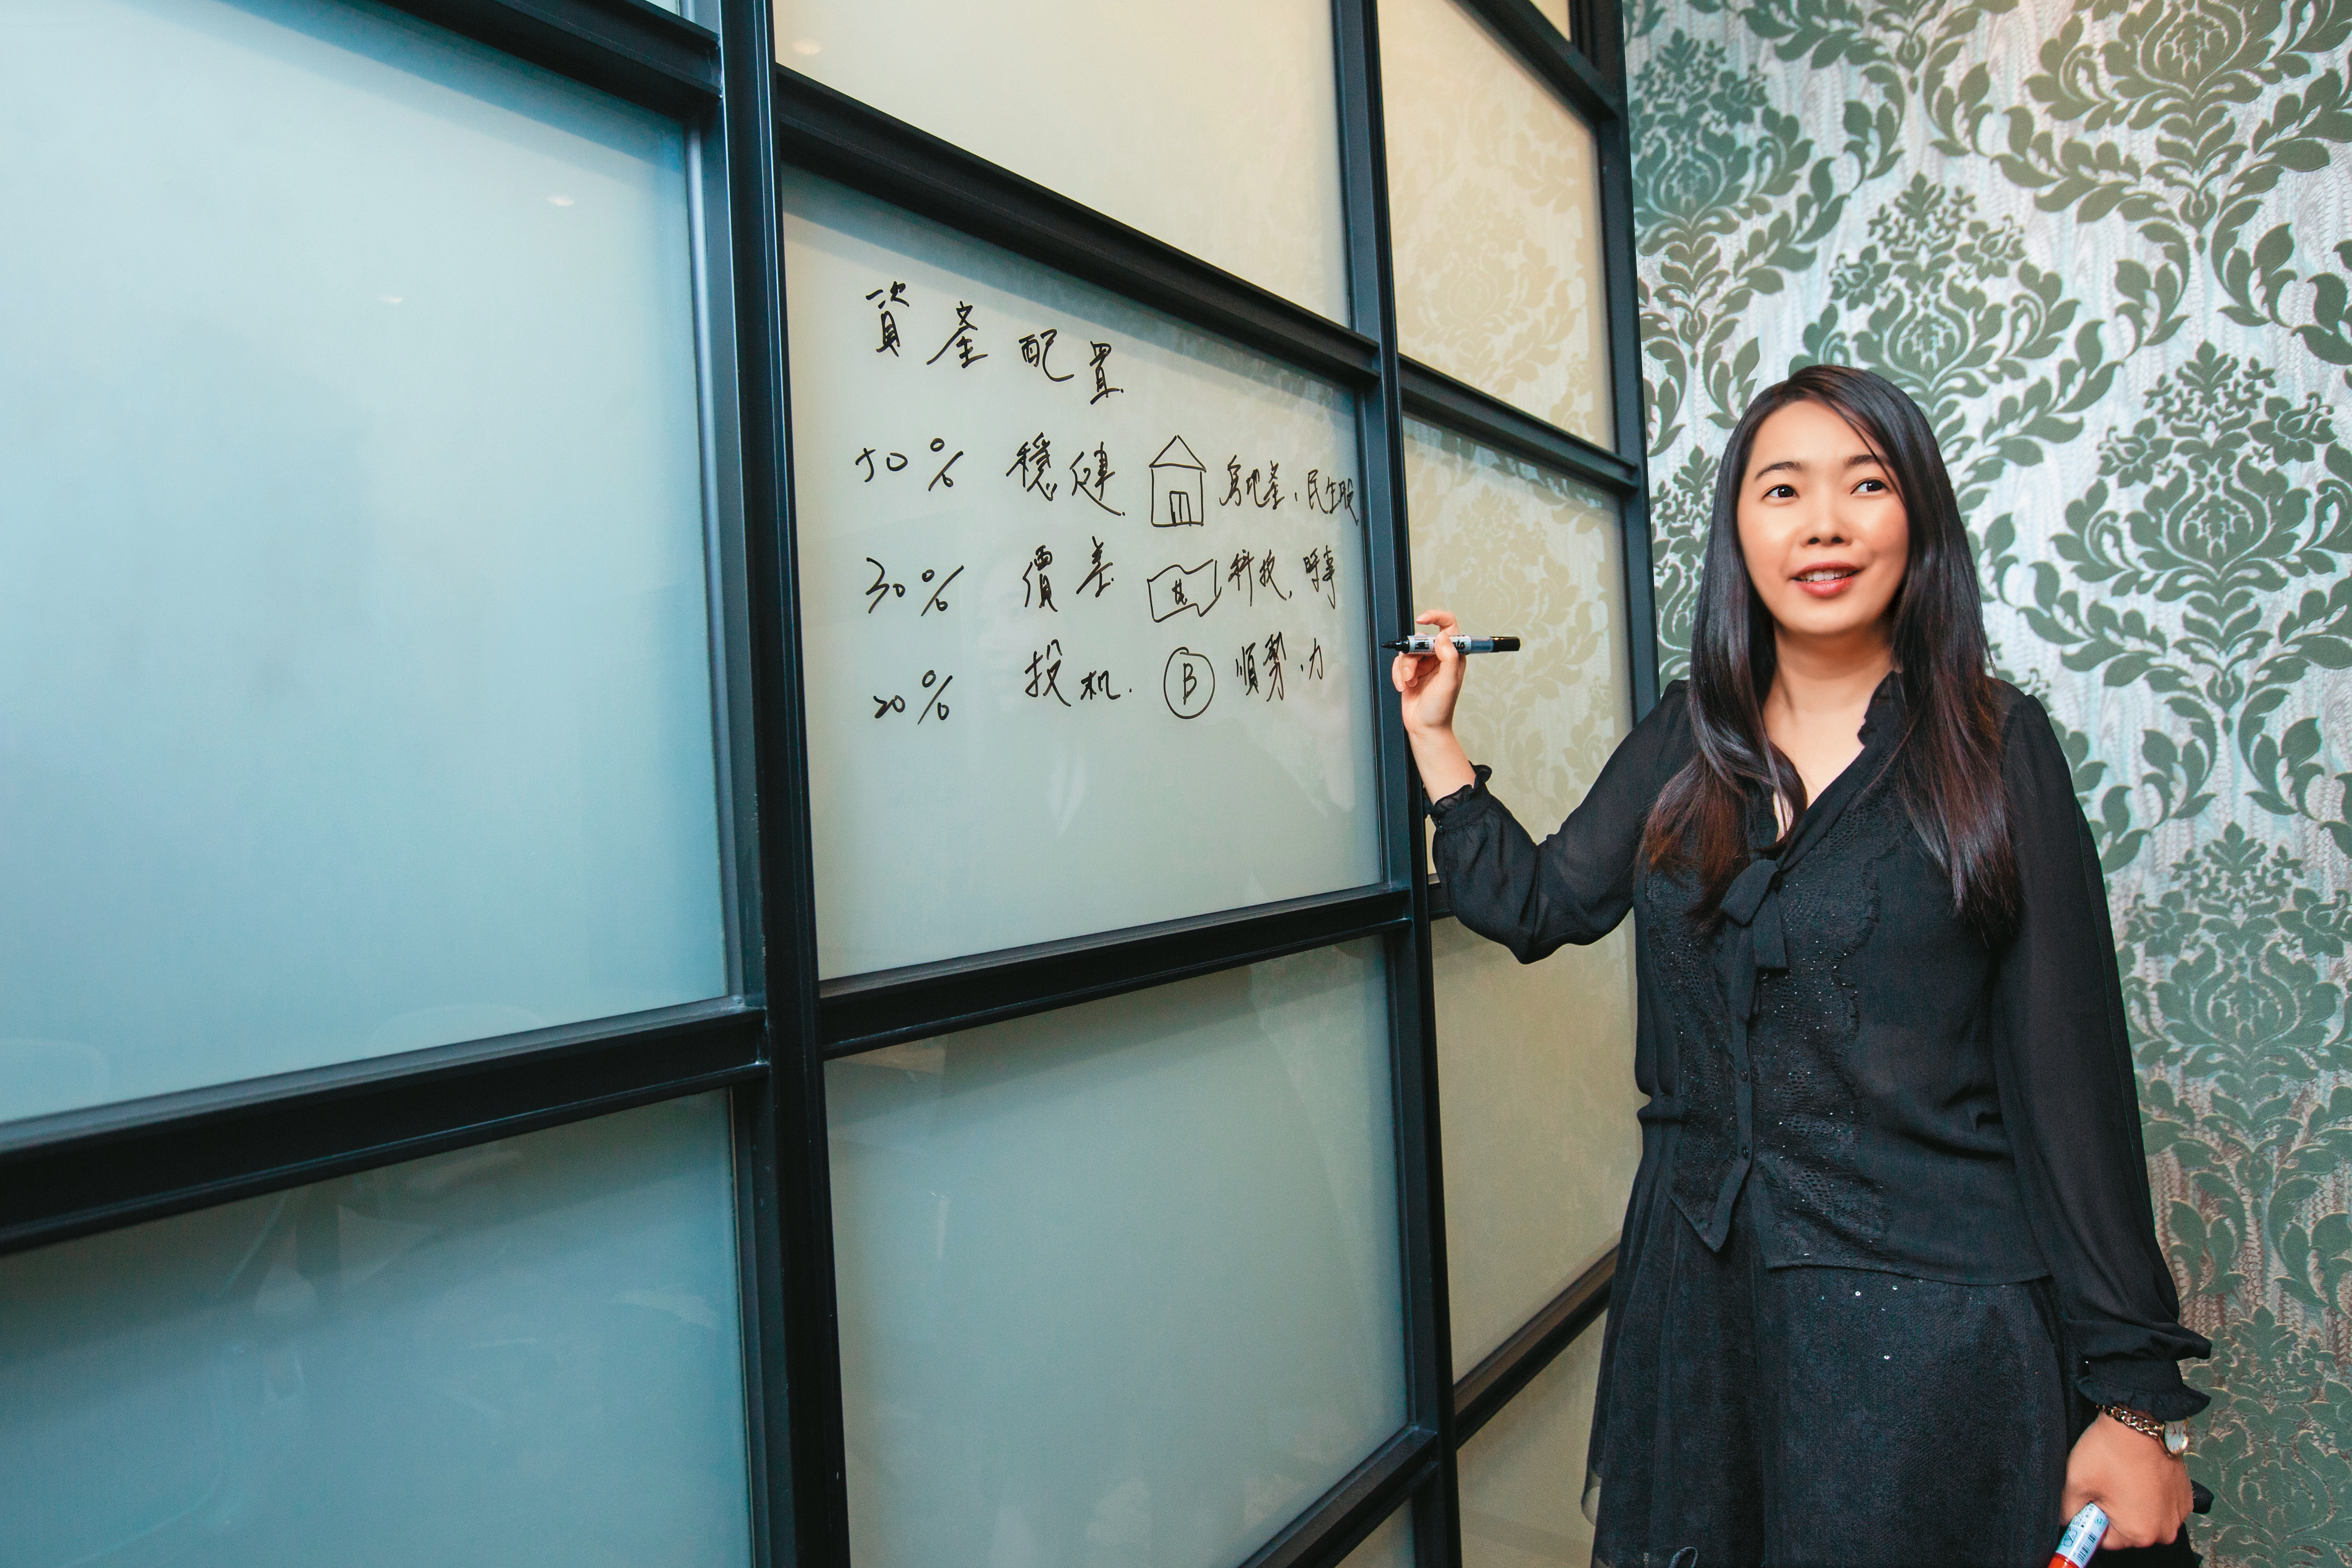 資產配置
50% 穩健 房地產、民生股
30% 價差 科技、時事
20% 投机. B 順勢、力